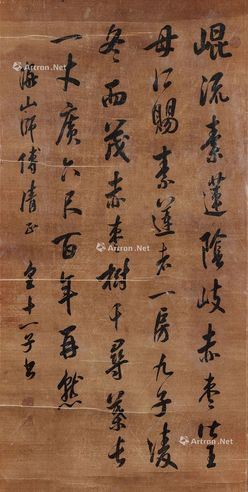 崐流素蓮陰岐赤枣
母所賜素蓮者一房九子凌
冬而茂赤枣樹千尋葉长
一丈廣六尺百年再然
海山師傅清正 皇十一子书
Artron.Net
Artron.Net
Artron.Net
Artron.Net